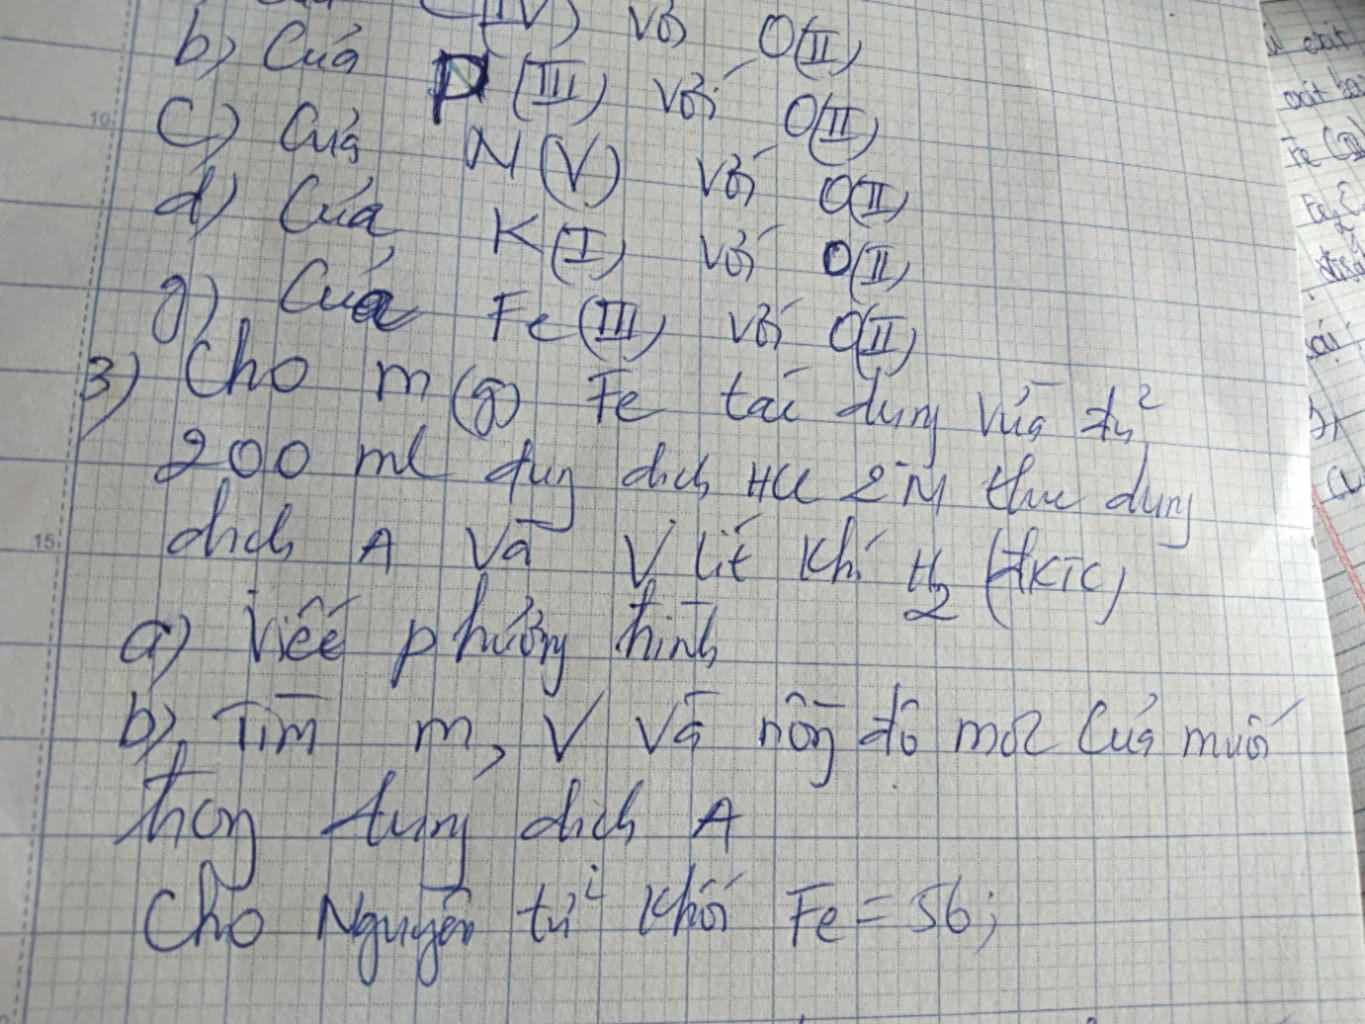 (IV) với O(II)
b) Của P (III) với O(II)
c) Của N (V) với O(II)
d) Của K(I) với O(II)
g) Của Fe(III) với O(II)
3) Cho m(g) Fe tác dụng vừa đủ
200 ml dung dịch HCl 2M thu dung
dịch A và V lít khí H₂ (ĐKTC)
a) Viết phương trình
b) Tìm m, V và nồng độ mol của muối
trong dung dịch A
Cho Nguyên tử khối Fe = 56;
10
15